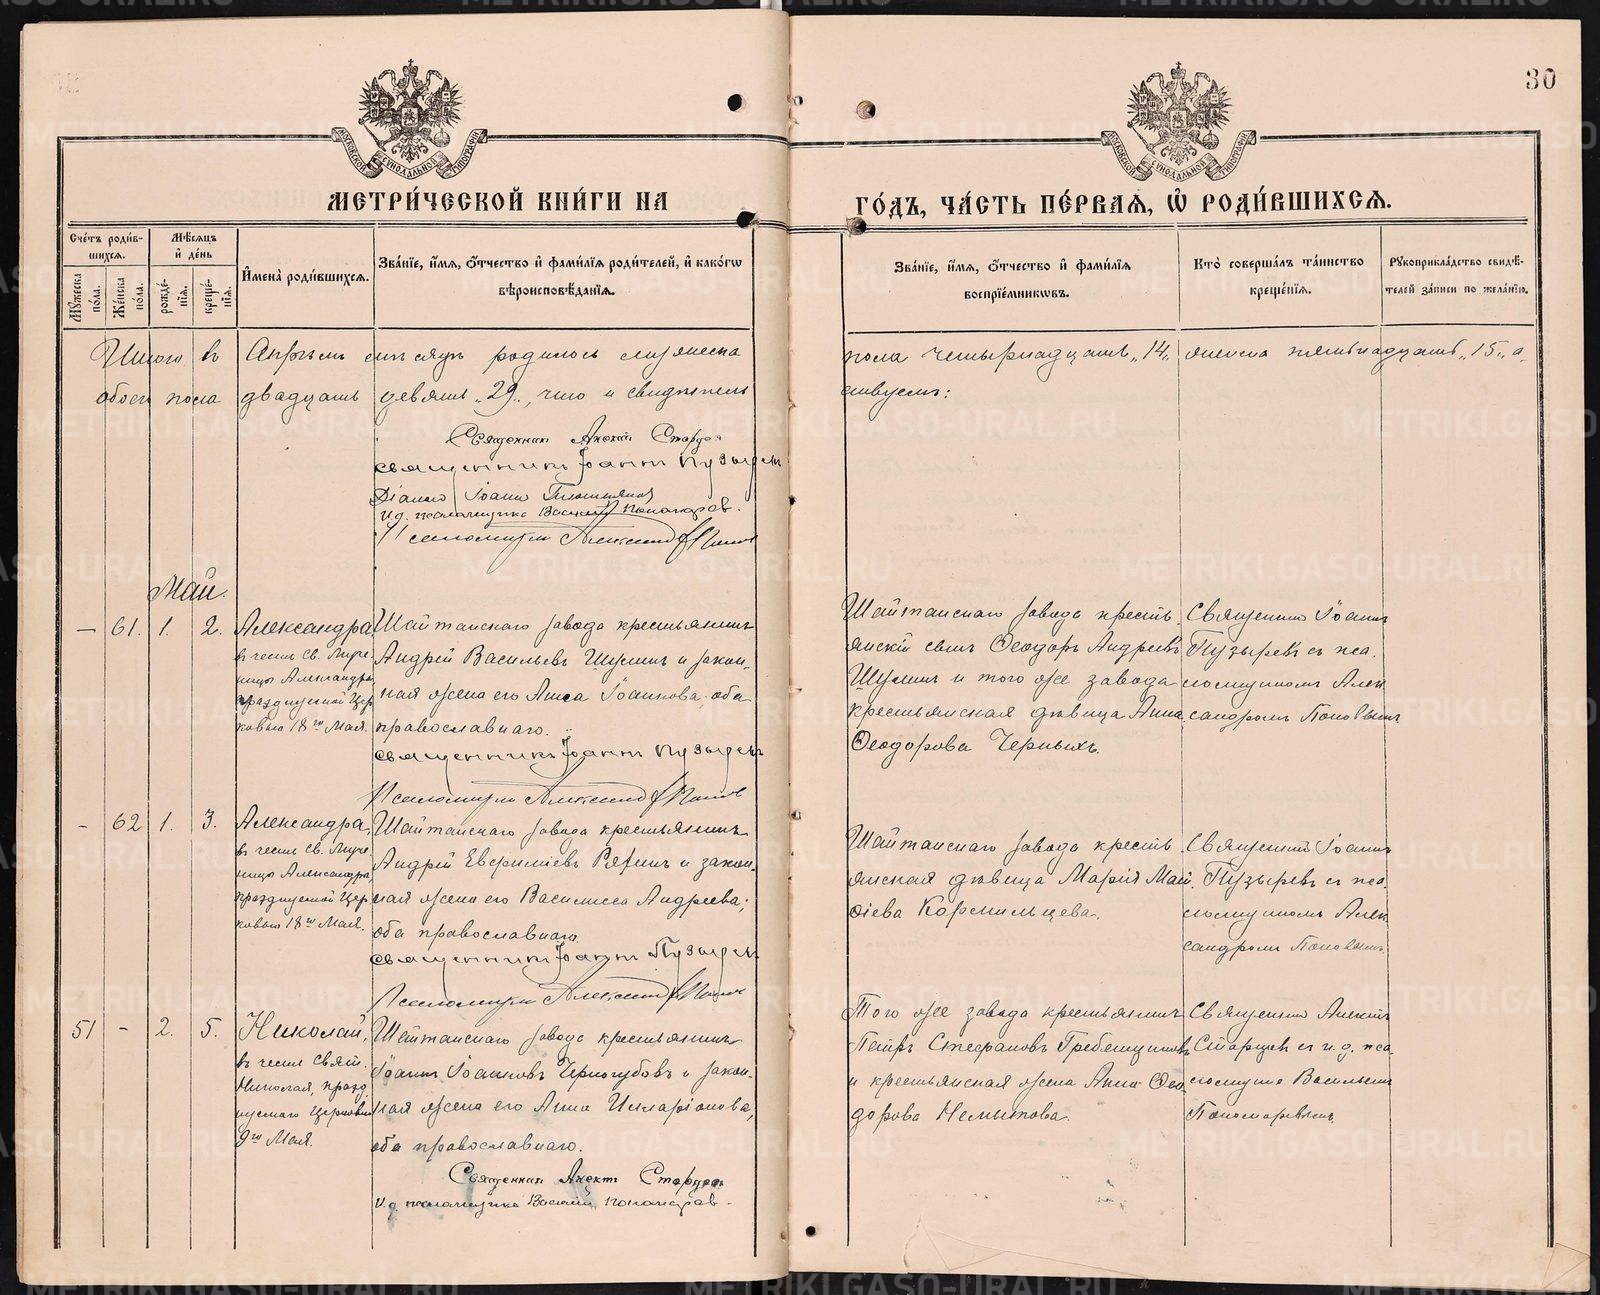 30
МОСКОВСКОЙ СѴНОДАЛЬНОЙ ТИПОГРАФІИ
МОСКОВСКОЙ СѴНОДАЛЬНОЙ ТИПОГРАФІИ
МЕТРИ́ЧЕСКОЙ КНИ́ГИ НА
ГО́ДЪ, ЧА́СТЬ ПЕ́РВАѦ, Ѡ҆ РОДИ́ВШИХСѦ.
Сче́тъ роди́в-
шихсѧ.
Мѣ́сѧцъ
и҆ де́нь
Мꙋ́жеска по́ла.
Же́нска по́ла.
рожде́-нїѧ.
креще́-нїѧ.
И҆мена̀ роди́вшихсѧ.
Зва́нїе, и҆́мѧ, ѻ҆́тчество и҆ фами́лїѧ роди́телей, и҆ како́гѡ
вѣроисповѣ́данїѧ.
Зва́нїе, и҆́мѧ, ѻ҆́тчество и҆ фами́лїѧ
воспрїе́мникѡвъ.
Кто̀ соверша́лъ та́инство
креще́нїѧ.
Рꙋкоприкла́дство свидѣ́-
телей за́писи по жела́нїю.
Итого въ Апрѣлѣ мѣсяцѣ родилось мужеска
пола четырнадцать „14„ женска пятьнадцать „15„ а
обоего пола двадцать девять „29„, что и свидѣтель
ствуемъ:
Священник Алексій Старцев
Священникъ Іоаннъ Пузырев
Діаконъ Іоаннъ
И.д. псаломщика Василій Пономарев.
Псаломщик Александр Попов
Май.
— 61. 1. 2. Александра
въ честь Св. Муче
ницы Александры
празднуемой Цер
ковью 18го Мая.
Шайтанскаго завода крестьянинъ
Андрей Васильевъ Шумин и закон.
ная жена его Анна Іоаннова оба
православнаго.
Священникъ Іоаннъ Пузырев
Псаломщик Александр Попов
Шайтанскаго завода кресть
янскій сынъ Ѳеодоръ Андреевъ
Шумин и того же завода
крестьянская дѣвица Анна
Ѳеодорова Черныхъ.
Священникъ Іоаннъ
Пузыревъ съ пса.
ломщикомъ Алек
сандромъ Поповымъ
- 62 1. 3. Александра,
въ честь Св. Муче
ницы Александры
празднуемой Цер
ковью 18го Мая.
Шайтанскаго завода крестьянинъ
Андрей Евфиміевъ и закон.
ная жена его Василисса Андреева;
оба православнаго.
Священникъ Іоаннъ Пузырев
Псаломщик Александр Попов
Шайтанскаго завода кресть
янская дѣвица Марія Мат
ѳіева Кормильцева.
Священникъ Іоаннъ
Пузыревъ съ пса
ломщикомъ Алек
сандромъ Поповымъ
51 - 2. 5. Николай,
въ честь Святи.
Николая, празд
нуемаго Церковью
9го Мая.
Шайтанскаго завода крестьянинъ
Іоаннъ Іоанновъ Черногубовъ и закон.
ная жена его Анна Илларіонова,
оба православнаго.
Священник Алексій Старцев
И.д. псаломщика Василій Пономарев.
Того же завода крестьянинъ
Петръ Стефановъ Гребенщиковъ
и крестьянская жена Анна Ѳео
дорова Немытова.
Священникъ Алексій
Старцевъ съ и.д. пса
ломщика Васильемъ
Пономаревымъ.
METRIKI.GASO-URAL.RU